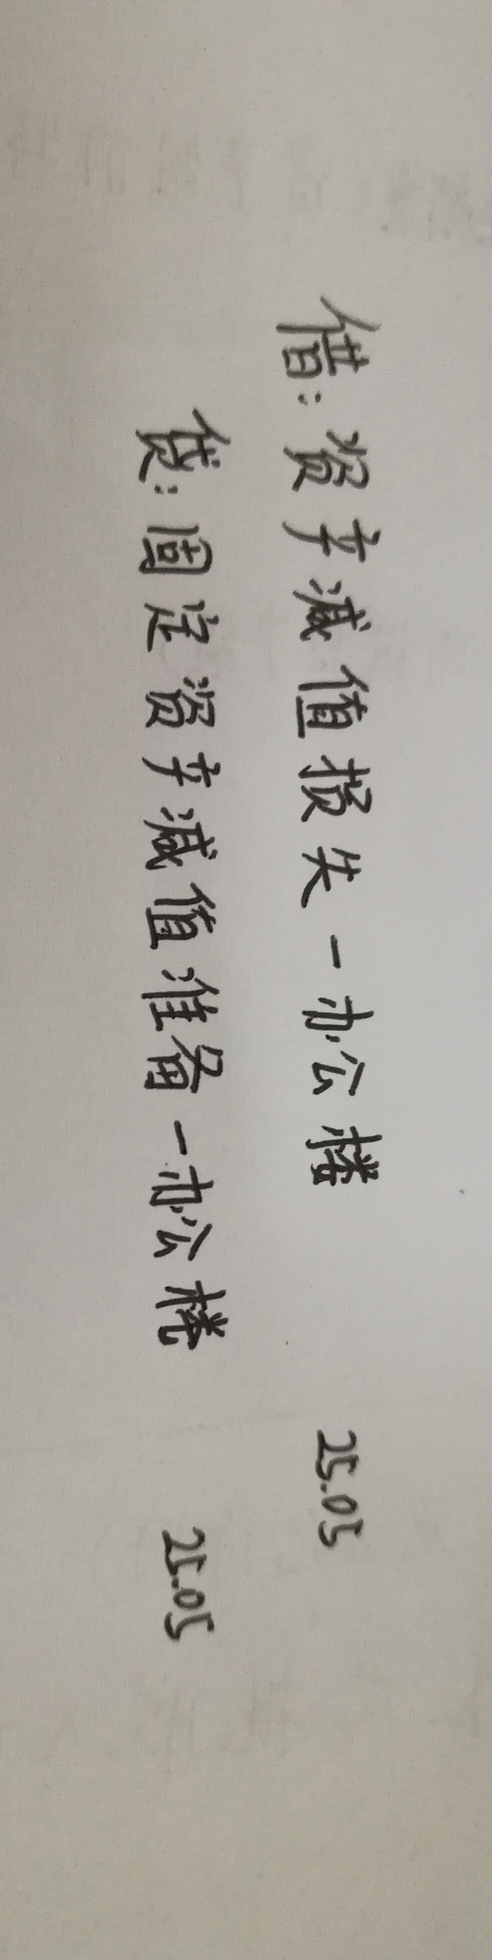 借：资产减值损失—办公楼 25.05
贷：固定资产减值准备—办公楼 25.05